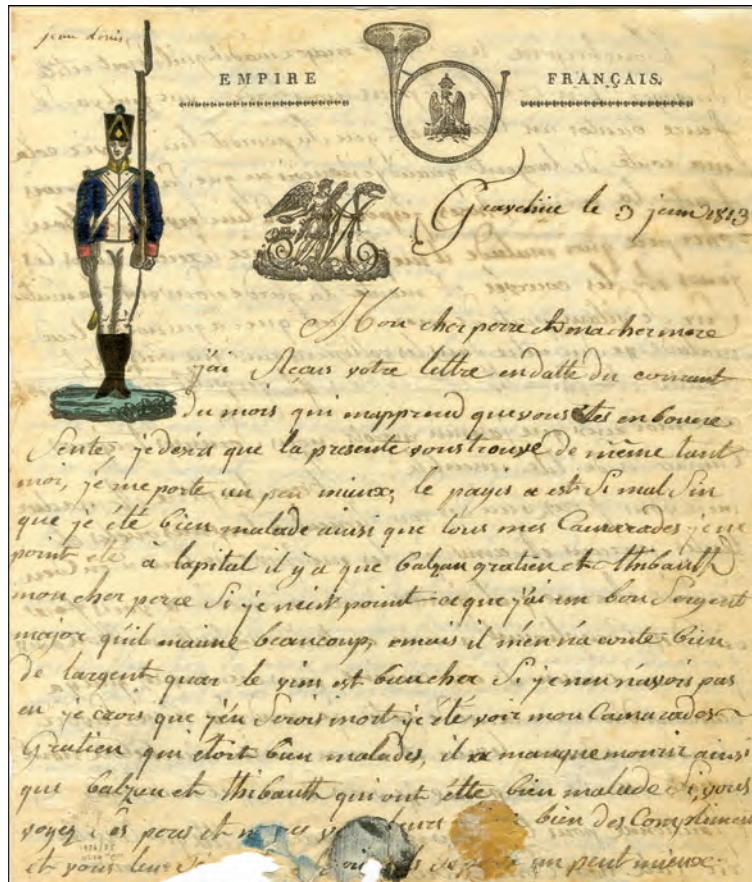 jean Louis
EMPIRE FRANÇAIS.
le 3 juin 1813
Mon cher perre et ma cher mere
j'ai Recus votre lettre en datte du courant
du mois qui mapprend que vous etes en bonne
Sente, je desir que la presente vous trouve de même tant
moi, je me porte un peu mieux, le payis a est Si mal Sin
que je été bien malade ainsi que tous mes Camarades je ne
point été à lapital il y a que balzan gratien et thibauth
mon cher perre Si je point a que j'ai un bon Sergent
major qu'il maime beaucoup, mais il m'en n'a coute bien
de largent quar le vins est bien cher Si je nen n'avois pas
eu je crois que j'en Serois mort je été voir mon Camarades
Gratien qui étoit bien malades, il a manque mourir ainsi
que balzan et thibauth qui ont étte bien malade Si vous
voyez peres et bien des Compliment
et vous leu un peut mieux.